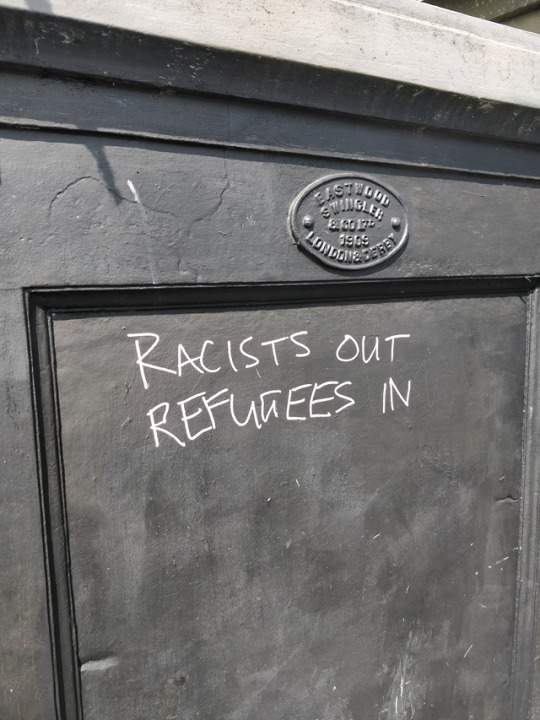 EASTWOOD
SWINGLER
& CO LTD
1909
LONDON & DERBY
RACISTS OUT
REFUGEES IN